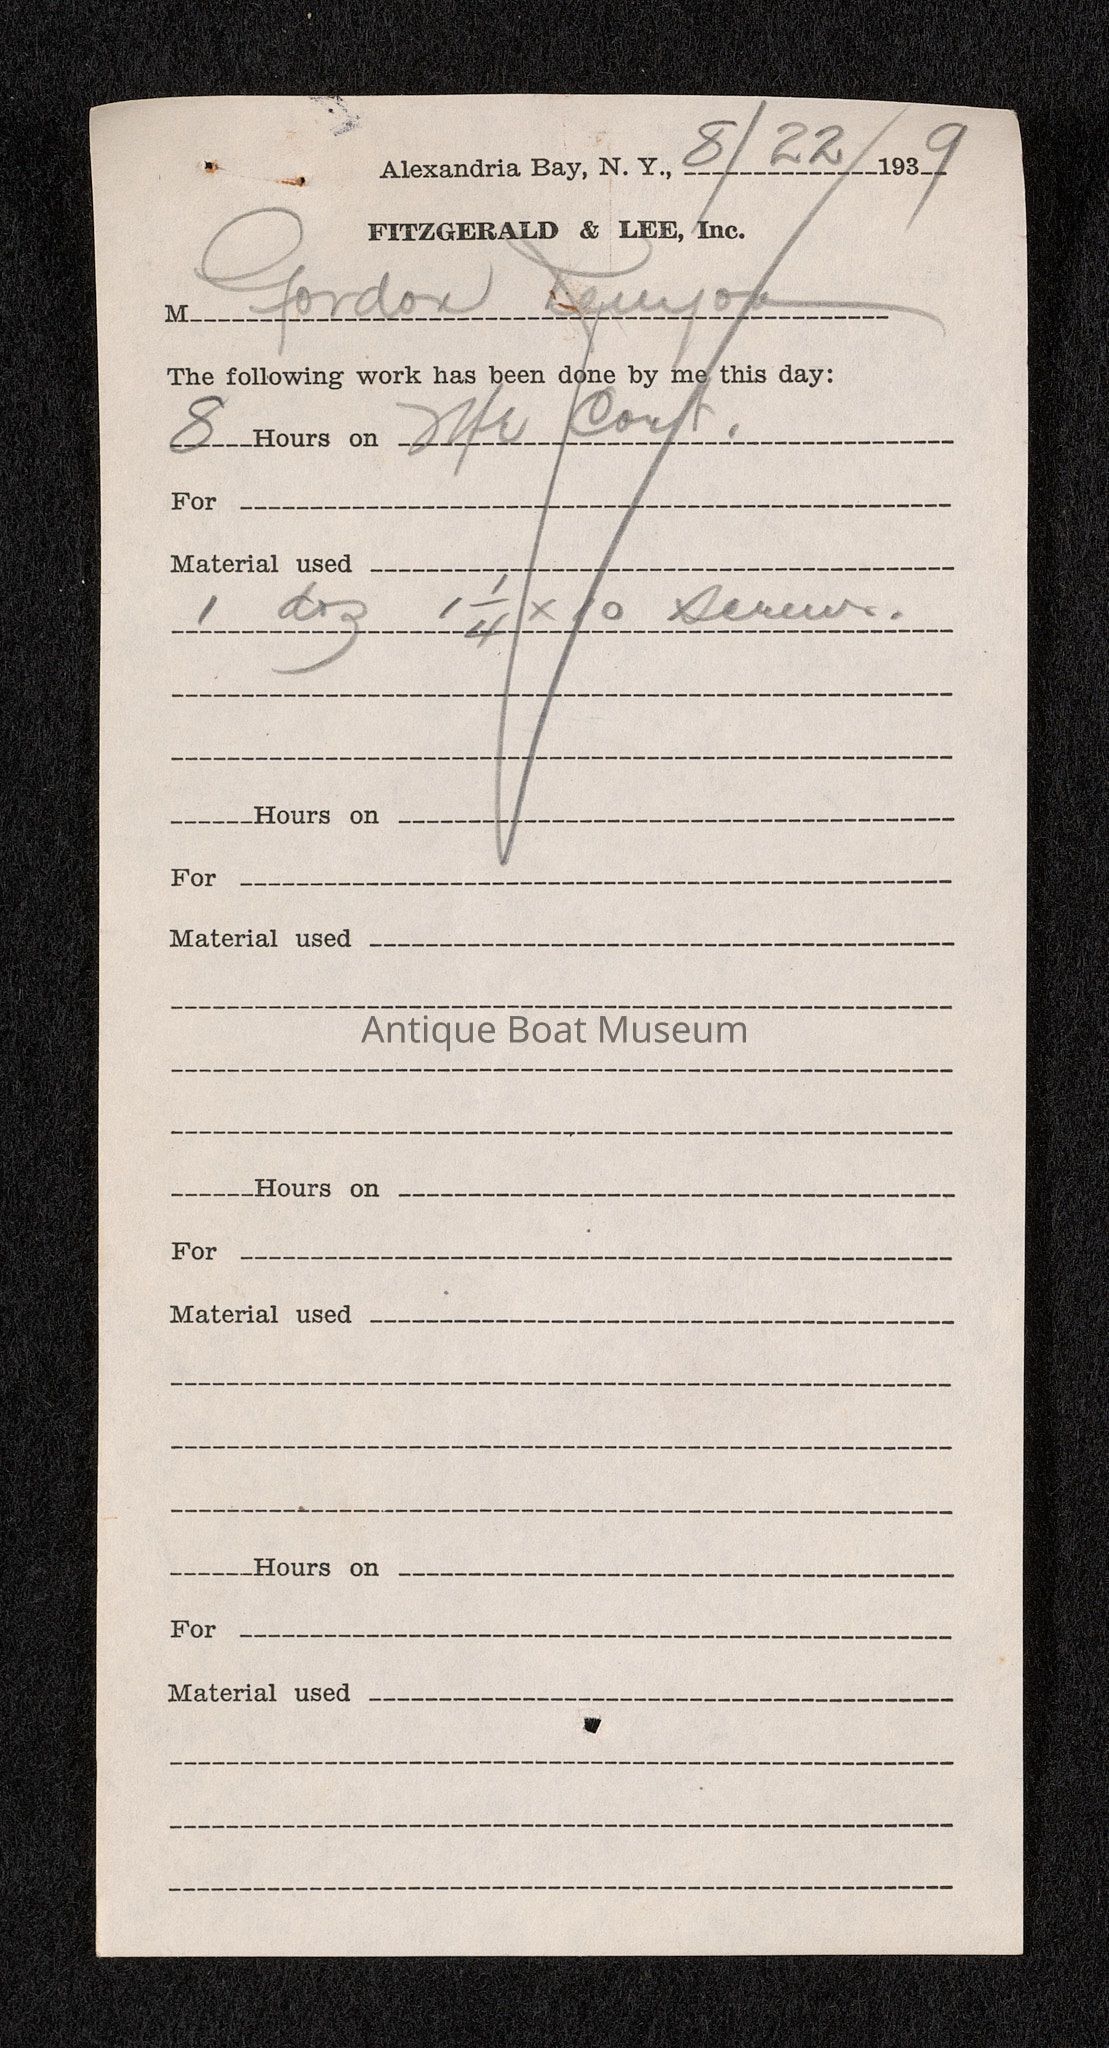 Alexandria Bay, N. Y., 8/22/1939
FITZGERALD & LEE, Inc.
M Gordon Kenyon
The following work has been done by me this day:
8 Hours on Cont.
For
Material used
1 doz 1 1/4 x 10 Screws.
Hours on
For
Material used
Antique Boat Museum
Hours on
For
Material used
Hours on
For
Material used